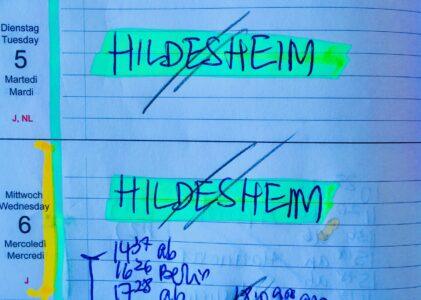 Dienstag
Tuesday
5
Martedi
Mardi
J, NL
HILDESHEIM
Mittwoch
Wednesday
6
Mercoledi
Mercredi
J
HILDESHEIM
14 37 ab
16 26 Berlin
17 28 ab